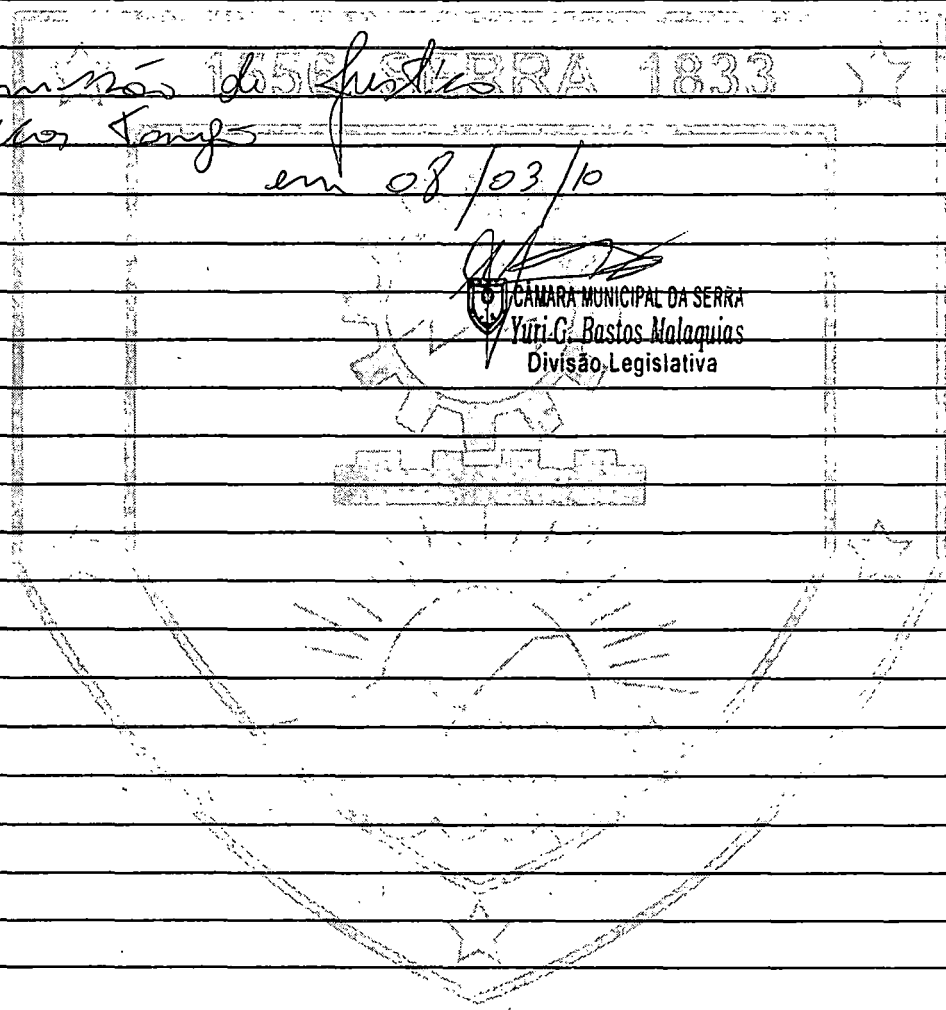 1556 SERRA 1833
missão de Justiça
em 08/03/10
CÂMARA MUNICIPAL DA SERRA
Yuri G. Bastos Malaquias
Divisão Legislativa